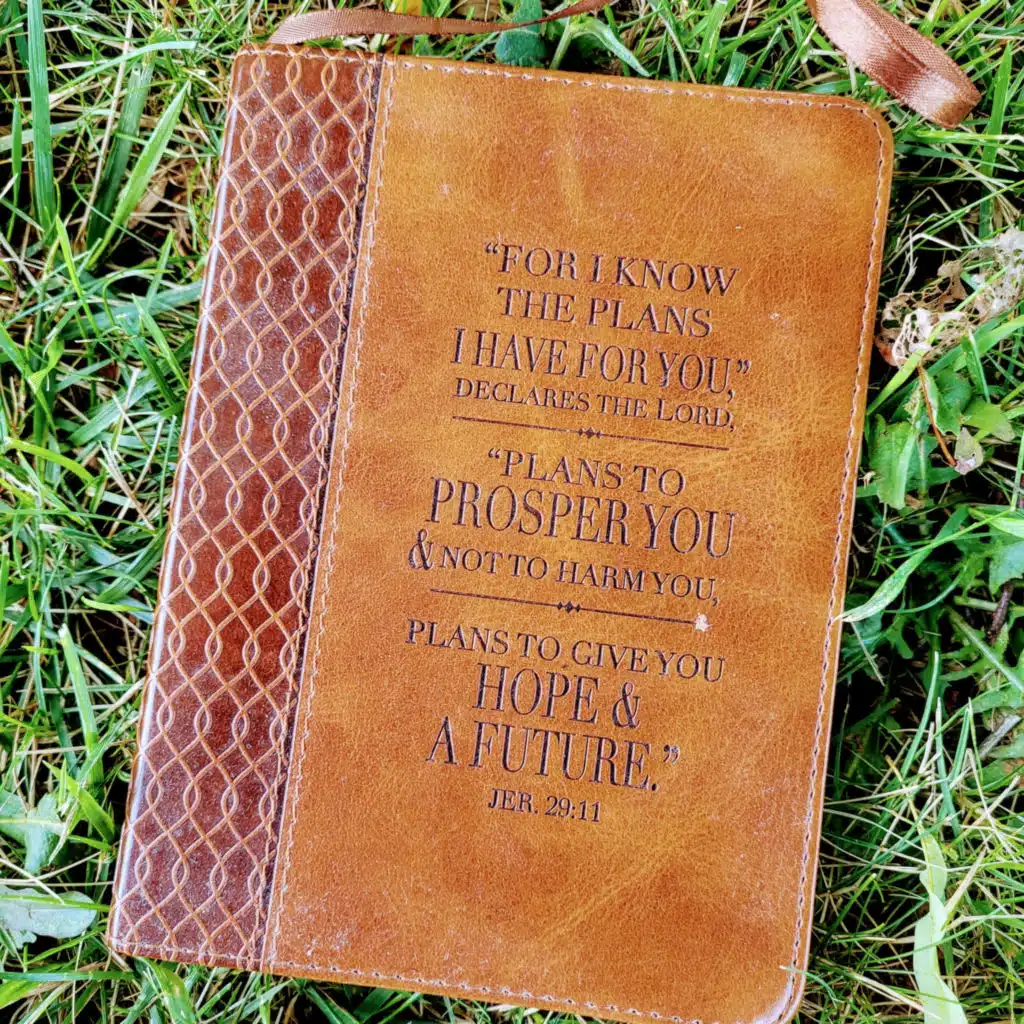 “FOR I KNOW
THE PLANS
I HAVE FOR YOU,”
DECLARES THE LORD,
“PLANS TO
PROSPER YOU
& NOT TO HARM YOU,
PLANS TO GIVE YOU
HOPE &
A FUTURE.”
JER. 29:11